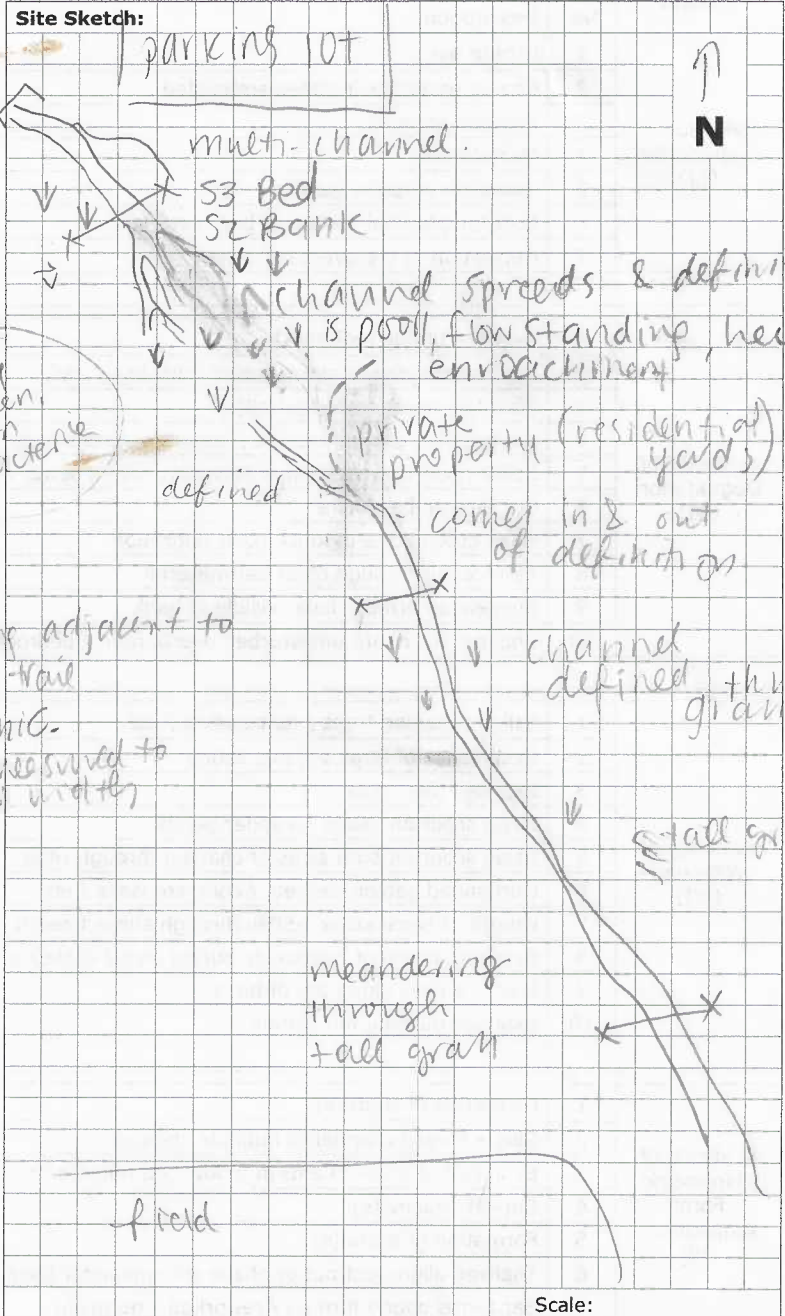 Site Sketch:
parking lot
N
multi-channel.
S3 Bed
S2 Bank
channel spreeds & defini
is poor, flow standing, hea
enroachment
private
property (residential)
yards)
en.
n
acterie
defined
comes in & out
of definition
adjacent to
trail
channel
defined thr
gran
nic.
measured to
width
tall gr
meandering
through
tall gran
field
Scale: